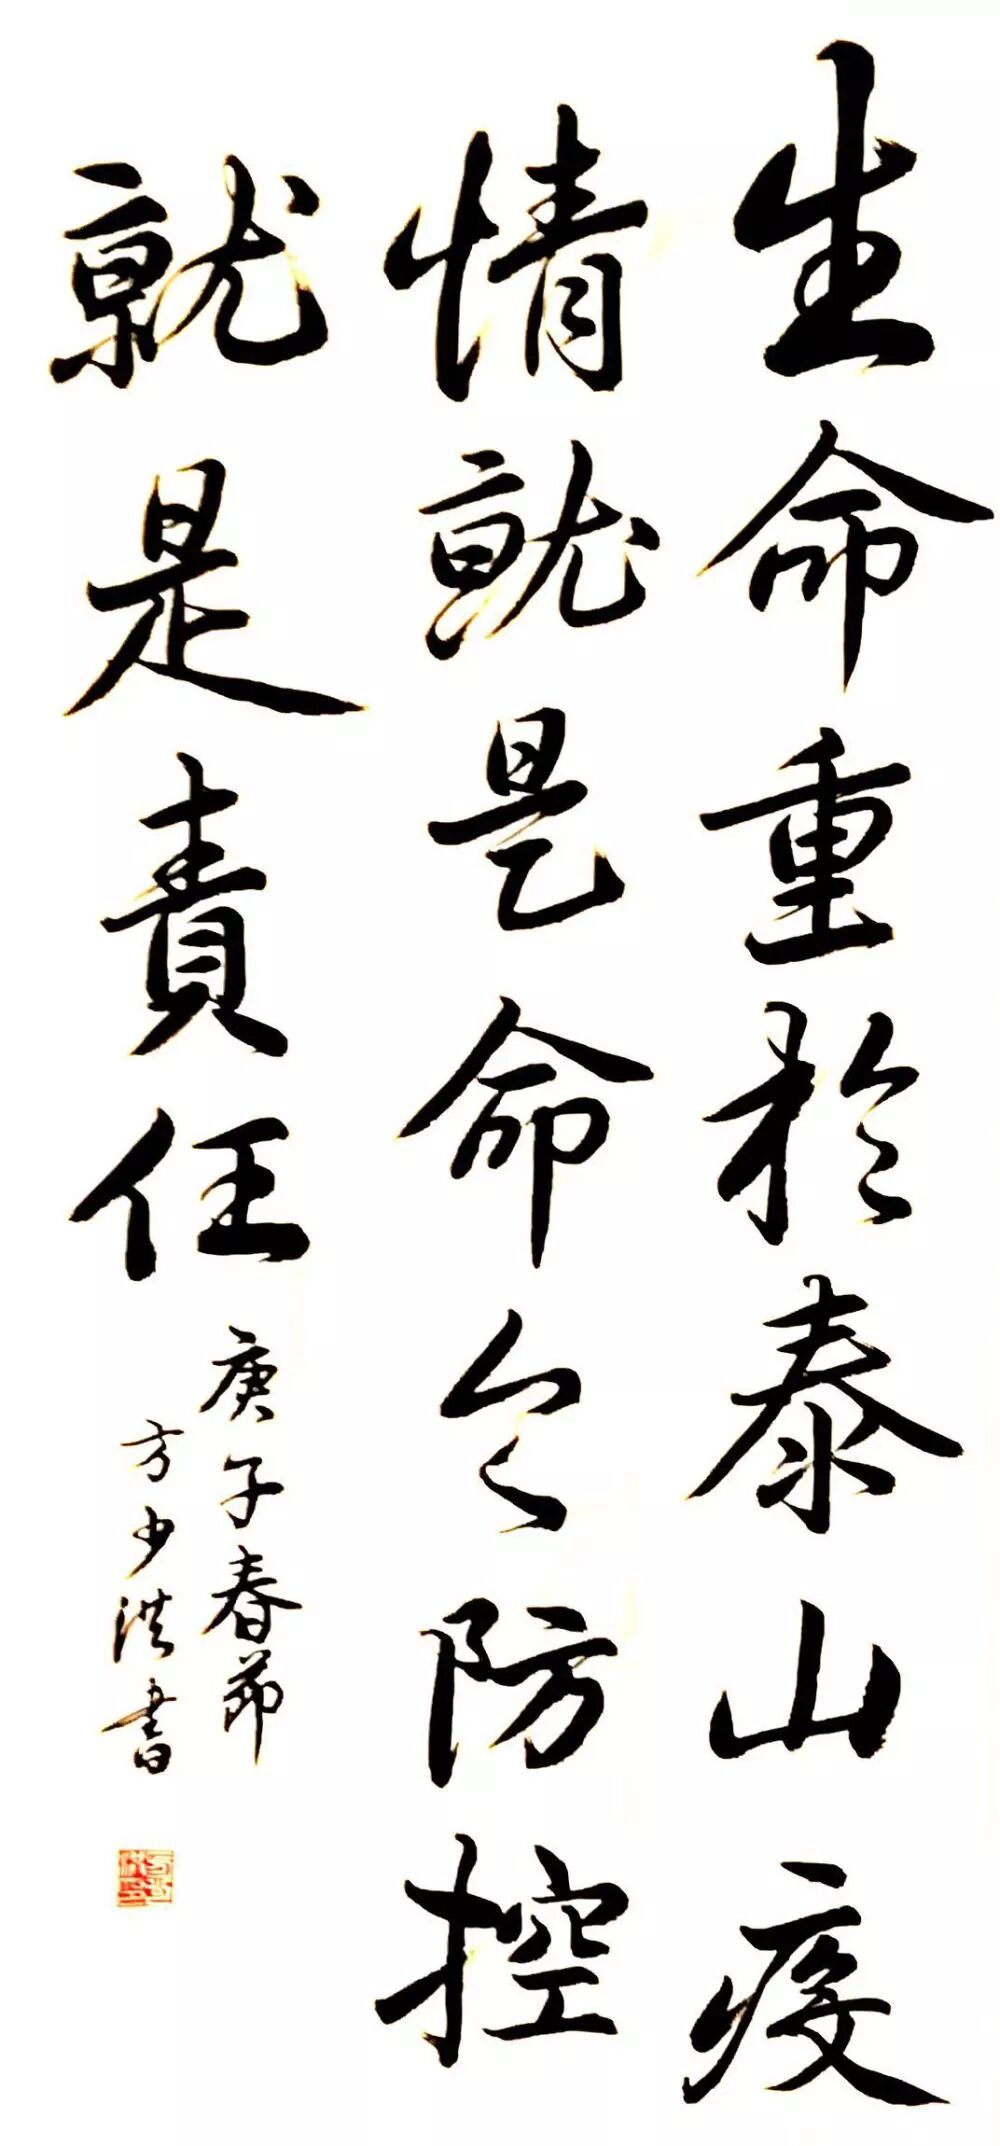 生命重於泰山疫
情就是命令防控
就是責任
庚子春節
方少洪書